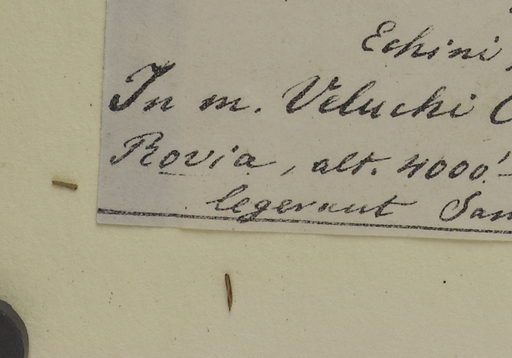 Echini
In m. Veluchi
Rovia, alt. 4000'
legerunt Sam